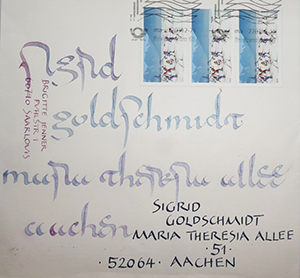 sigrid
goldschmidt
maria theresia allee
aachen
BRIGITTE JENNER
66740 SAARLOUIS
SIGRID
GOLDSCHMIDT
MARIA THERESIA ALLEE
·51·
·52064· AACHEN